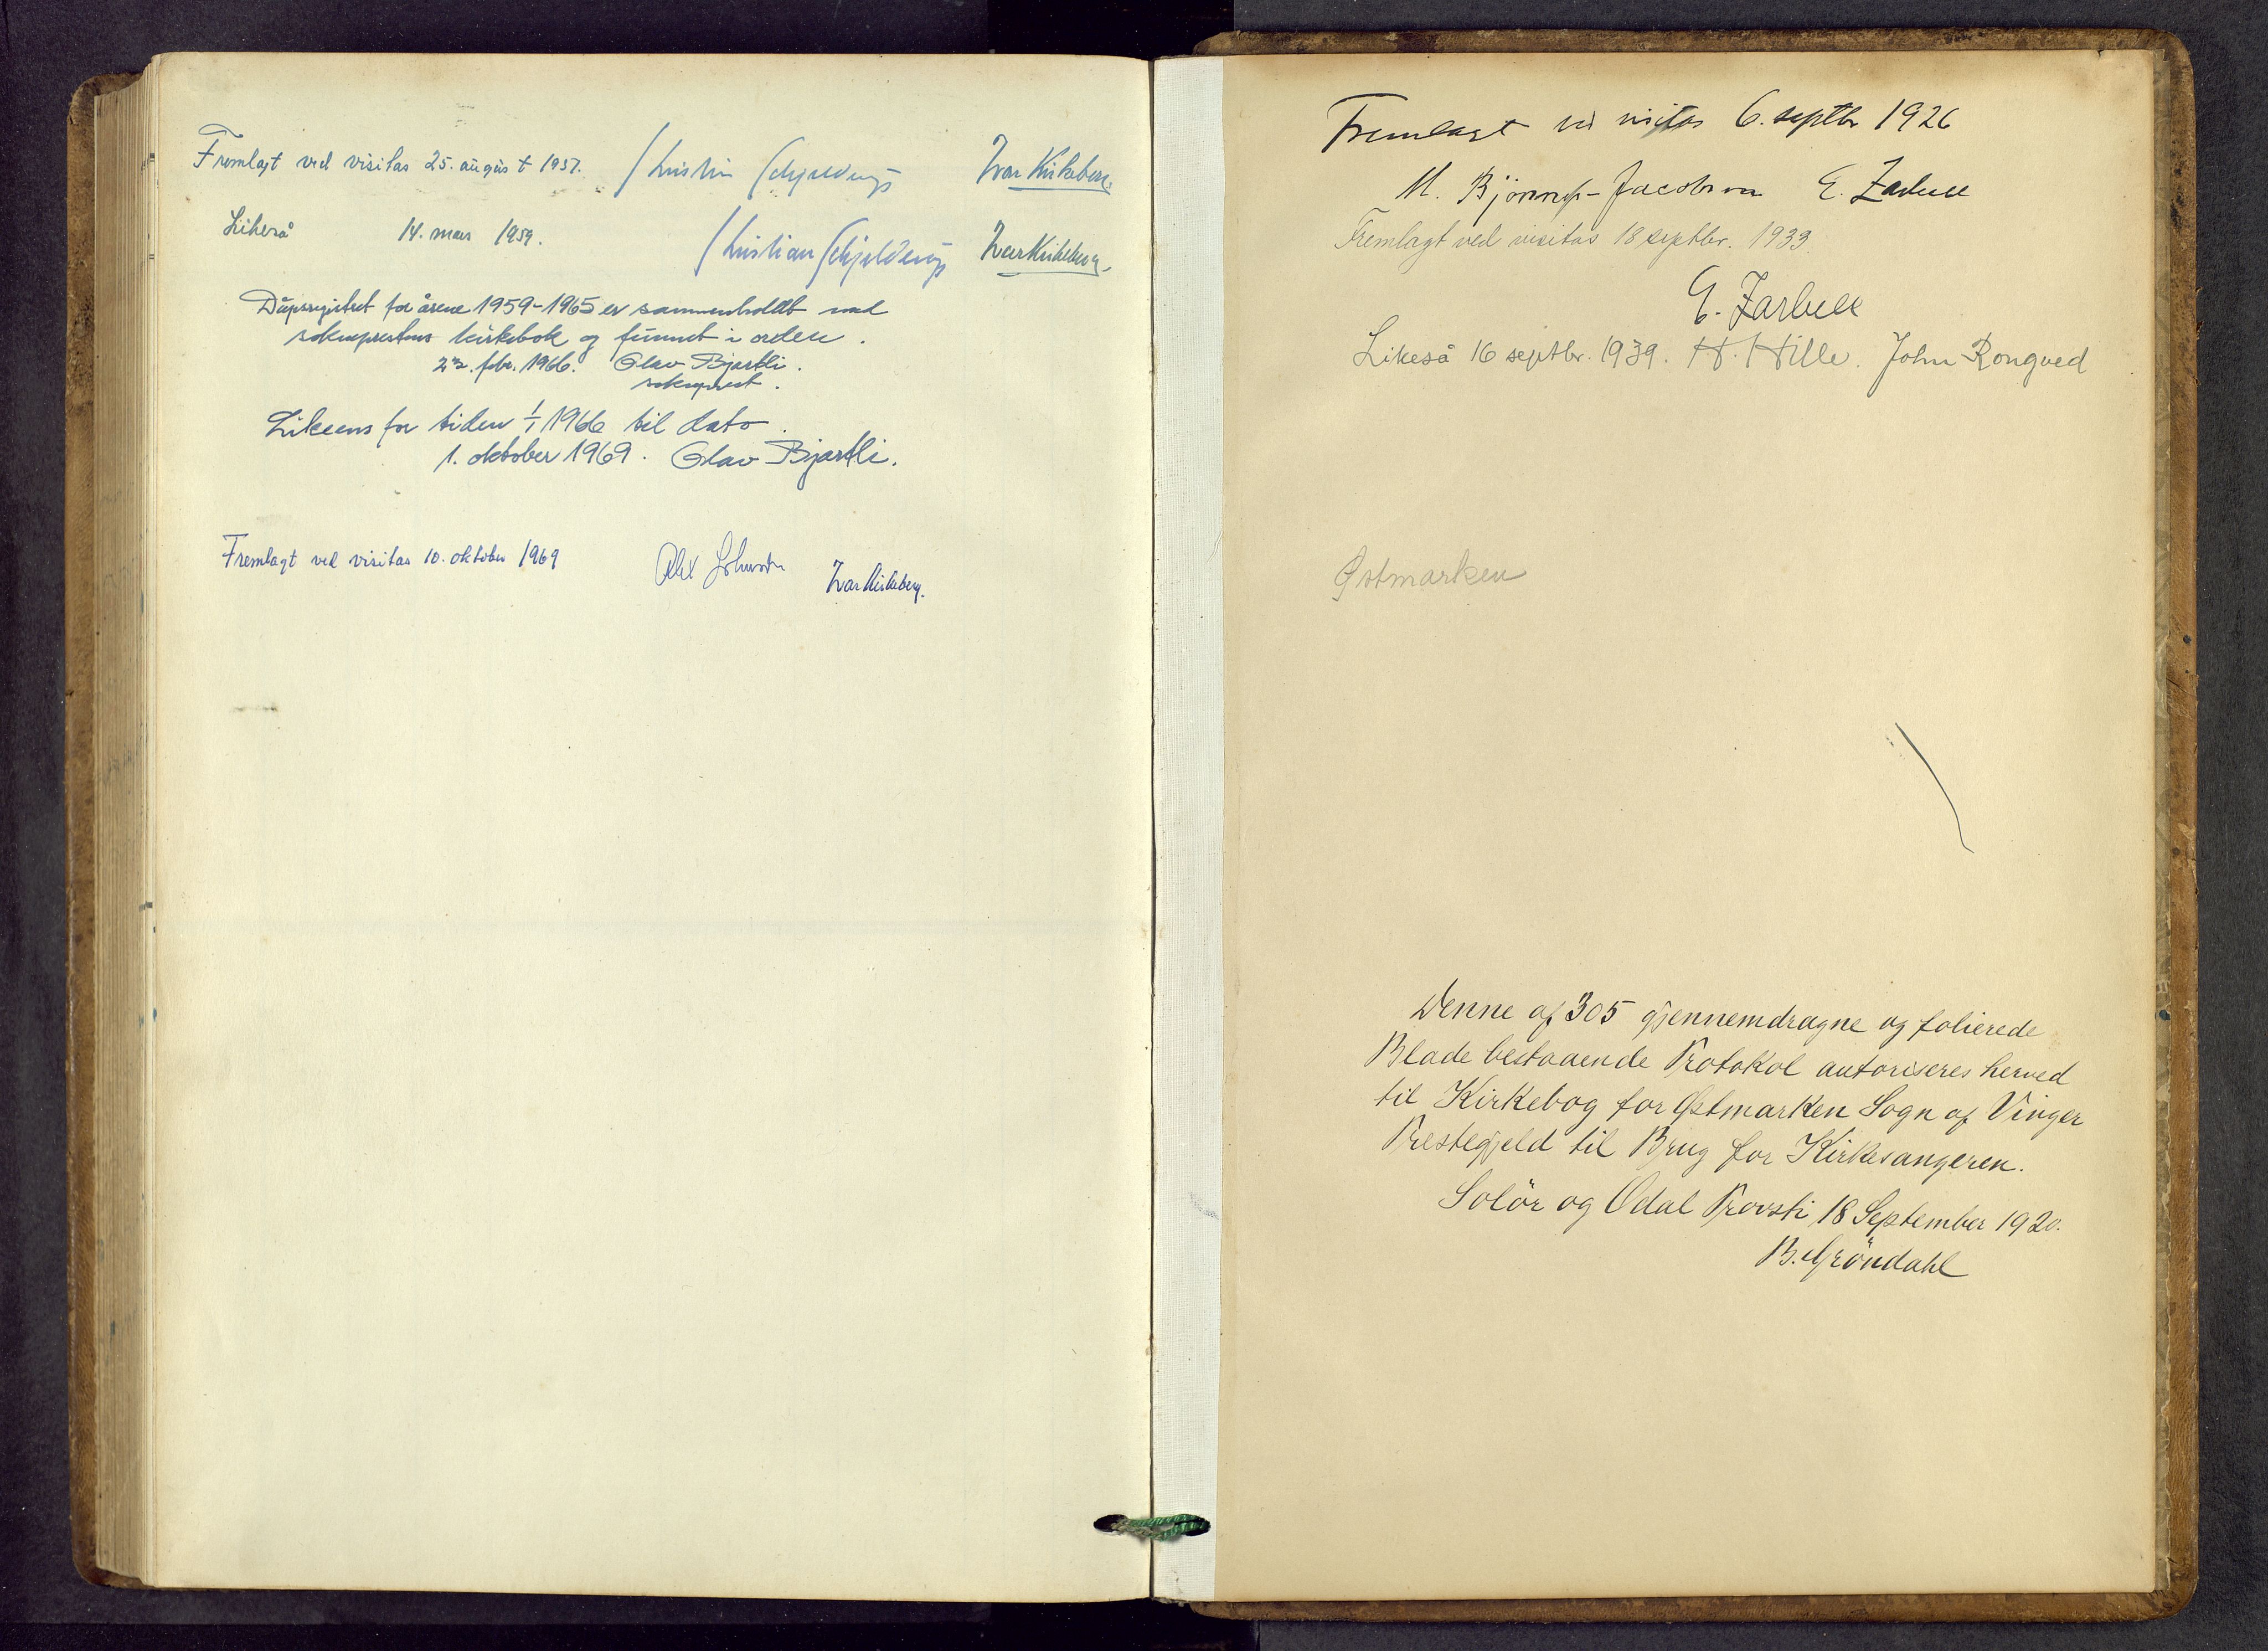 Fremlagt ved visitas 25. august 1957. Kristian Schjelderup Ivar Kirkeberg.
Likeså 14. mars 1959. Kristian Schjelderup Ivar Kirkeberg.
Dåpsregistret for årene 1959-1965 er sammenholdt med
sokneprestens kirkebok og funnet i orden.
febr. 1966. Olav Bjartli.
sokneprest.
Likeens for tiden 1/1 1966 til dato.
1. oktober 1969. Olav Bjartli.
Fremlagt ved visitas 10. oktober 1969 Alex Johnson Ivar Kirkeberg.
Fremlagt ved visitas 6. septbr 1926
M. Bjønnes-Jacobsen E. Zarbell
Fremlagt ved visitas 18 septbr. 1933
E. Zarbell
Likeså 16 septbr. 1939. H. Hille. John Rongved
Østmarken
Denne af 305 gjennemdragne og folierede
Blade bestaaende Protokol autoriseres herved
til Kirkebog for Østmarken Sogn af Vinger
Prestegjeld til Brug for Kirkesangeren.
Solör og Odal Provsti 18 September 1920.
B. Gröndahl